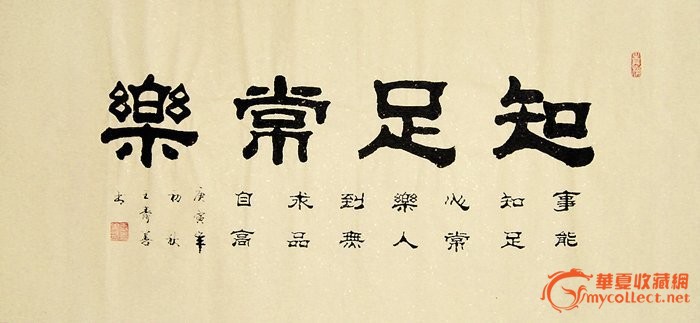 知足常樂
事能
知足
心常
樂人
到無
求品
自高
庚寅年
初秋
王秀善
書
華夏收藏網
mycollect.net